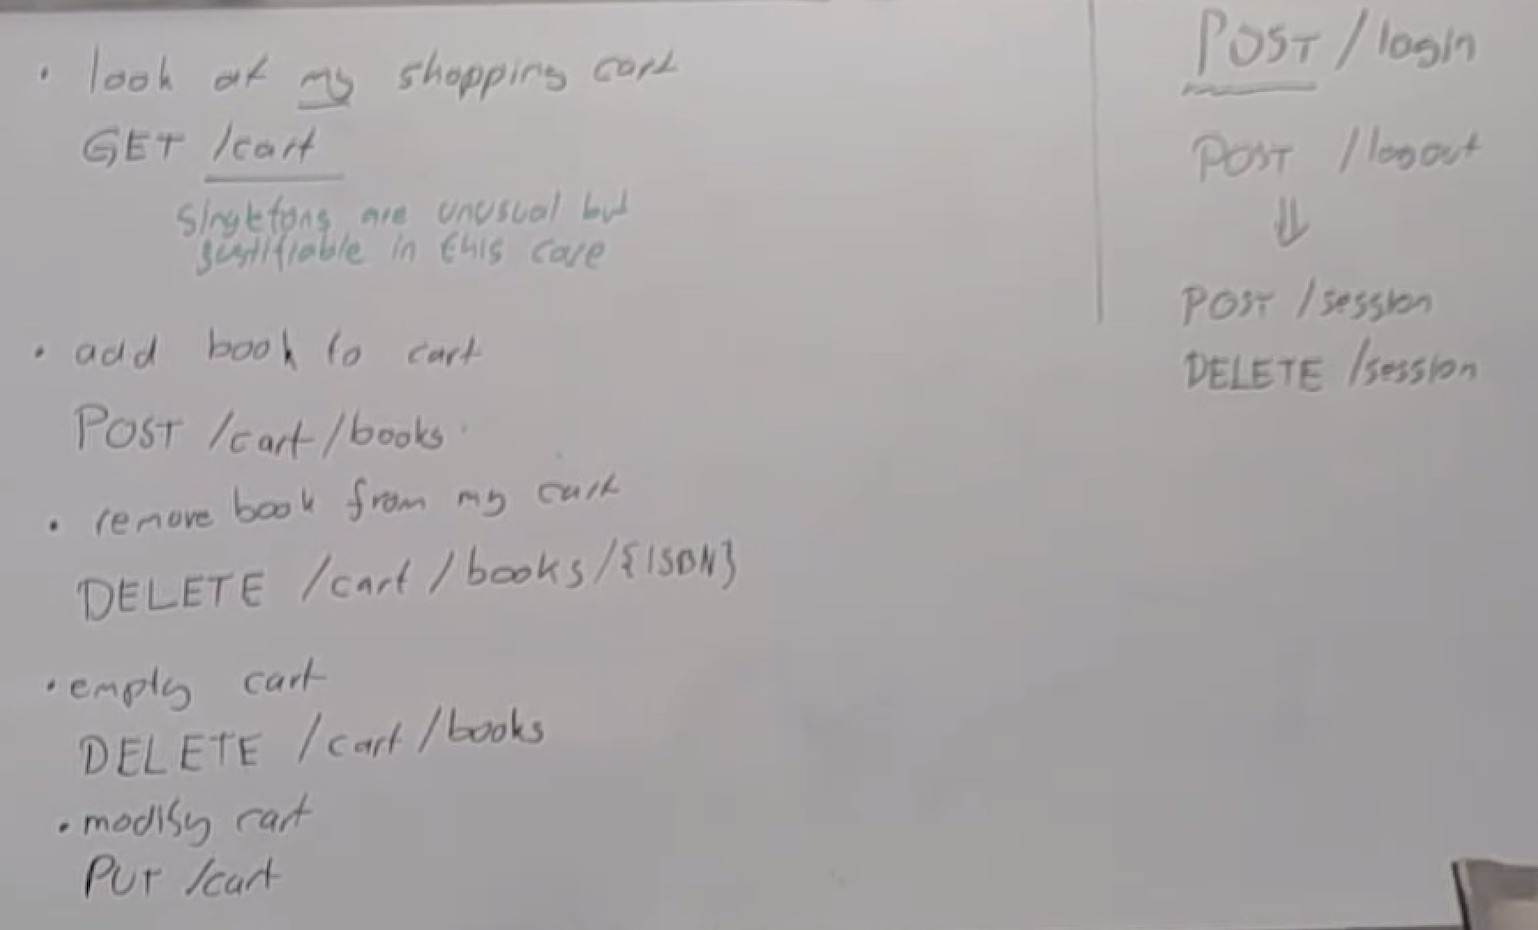 • look at my shopping cart
GET /cart
Singletons are unusual but
justifiable in this case
• add book to cart
POST /cart/books
• remove book from my cart
DELETE /cart/books/{ISBN}
• empty cart
DELETE /cart/books
• modify cart
PUT /cart
POST /login
POST /logout
⇓
POST /session
DELETE /session